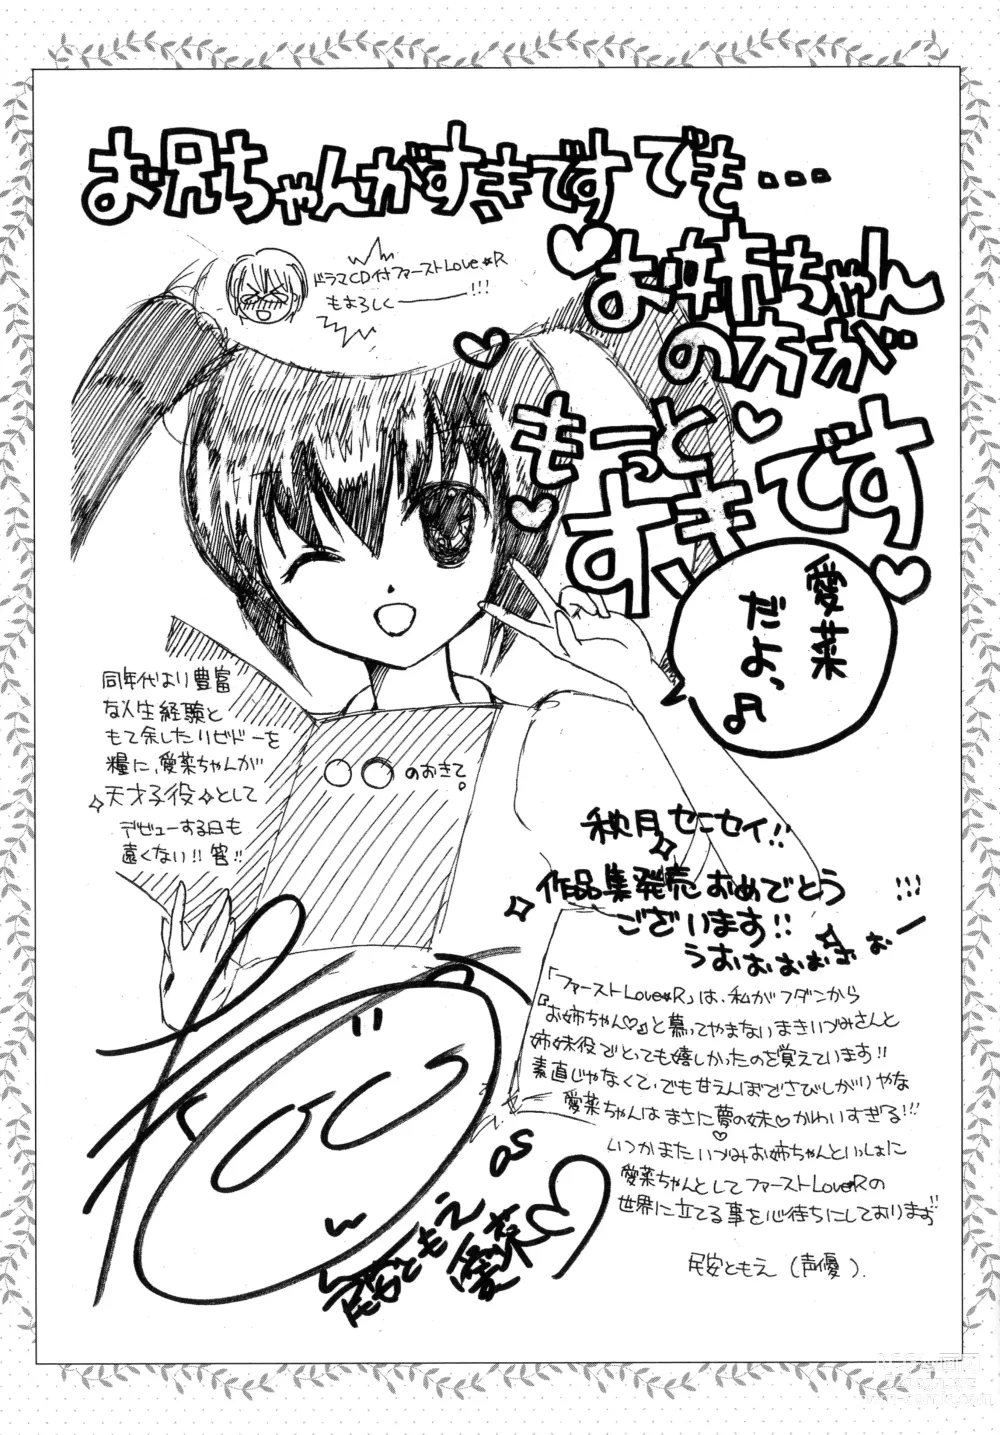 お兄ちゃんがすきですでも...
お姉ちゃん
の方が
もーっと
すきです
ドラマCD付ファーストLove★R
もよろしくーーー!!!
愛菜
だよっ♪
同年代より豊富
な人生経験と
もて余したリビドーを
糧に、愛菜ちゃんが
天才子役として
デビューする日も
遠くない!!筈!!
○○のおきて。
秋月センセイ!!
作品集発売おめでとう
ございます!!
うおぉぉぉぉぉー!!!
「ファーストLove★R」は、私がフダンから
『お姉ちゃん♡』と慕ってやまないまきいづみさんと
姉妹役でとっても嬉しかったのを覚えています!!
素直じゃなくて、でも甘えんぼでさびしがりやな
愛菜ちゃんはまさに夢の妹♡かわいすぎる!!!
いつかまたいづみお姉ちゃんといっしょに
愛菜ちゃんとしてファーストLove★Rの
世界に立てる事を心待ちにしております!!
民安ともえ(声優).
民安ともえ as
愛菜♡